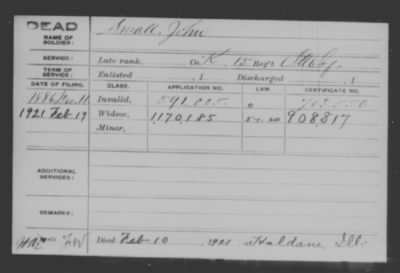 DEAD
NAME OF SOLDIER: Small, John
SERVICE: Late rank, Co. K, 15 Reg't
TERM OF SERVICE: Enlisted , 1 Discharged , 1
DATE OF FILING. CLASS. APPLICATION NO. LAW. CERTIFICATE NO.
1886 Invalid, 591.005 703.550
1921 Feb 19 Widow, 1,170,185 908,817
Minor,
ADDITIONAL SERVICES:
REMARKS:
Died Feb 10 , 1921 at Haldane, Ill.